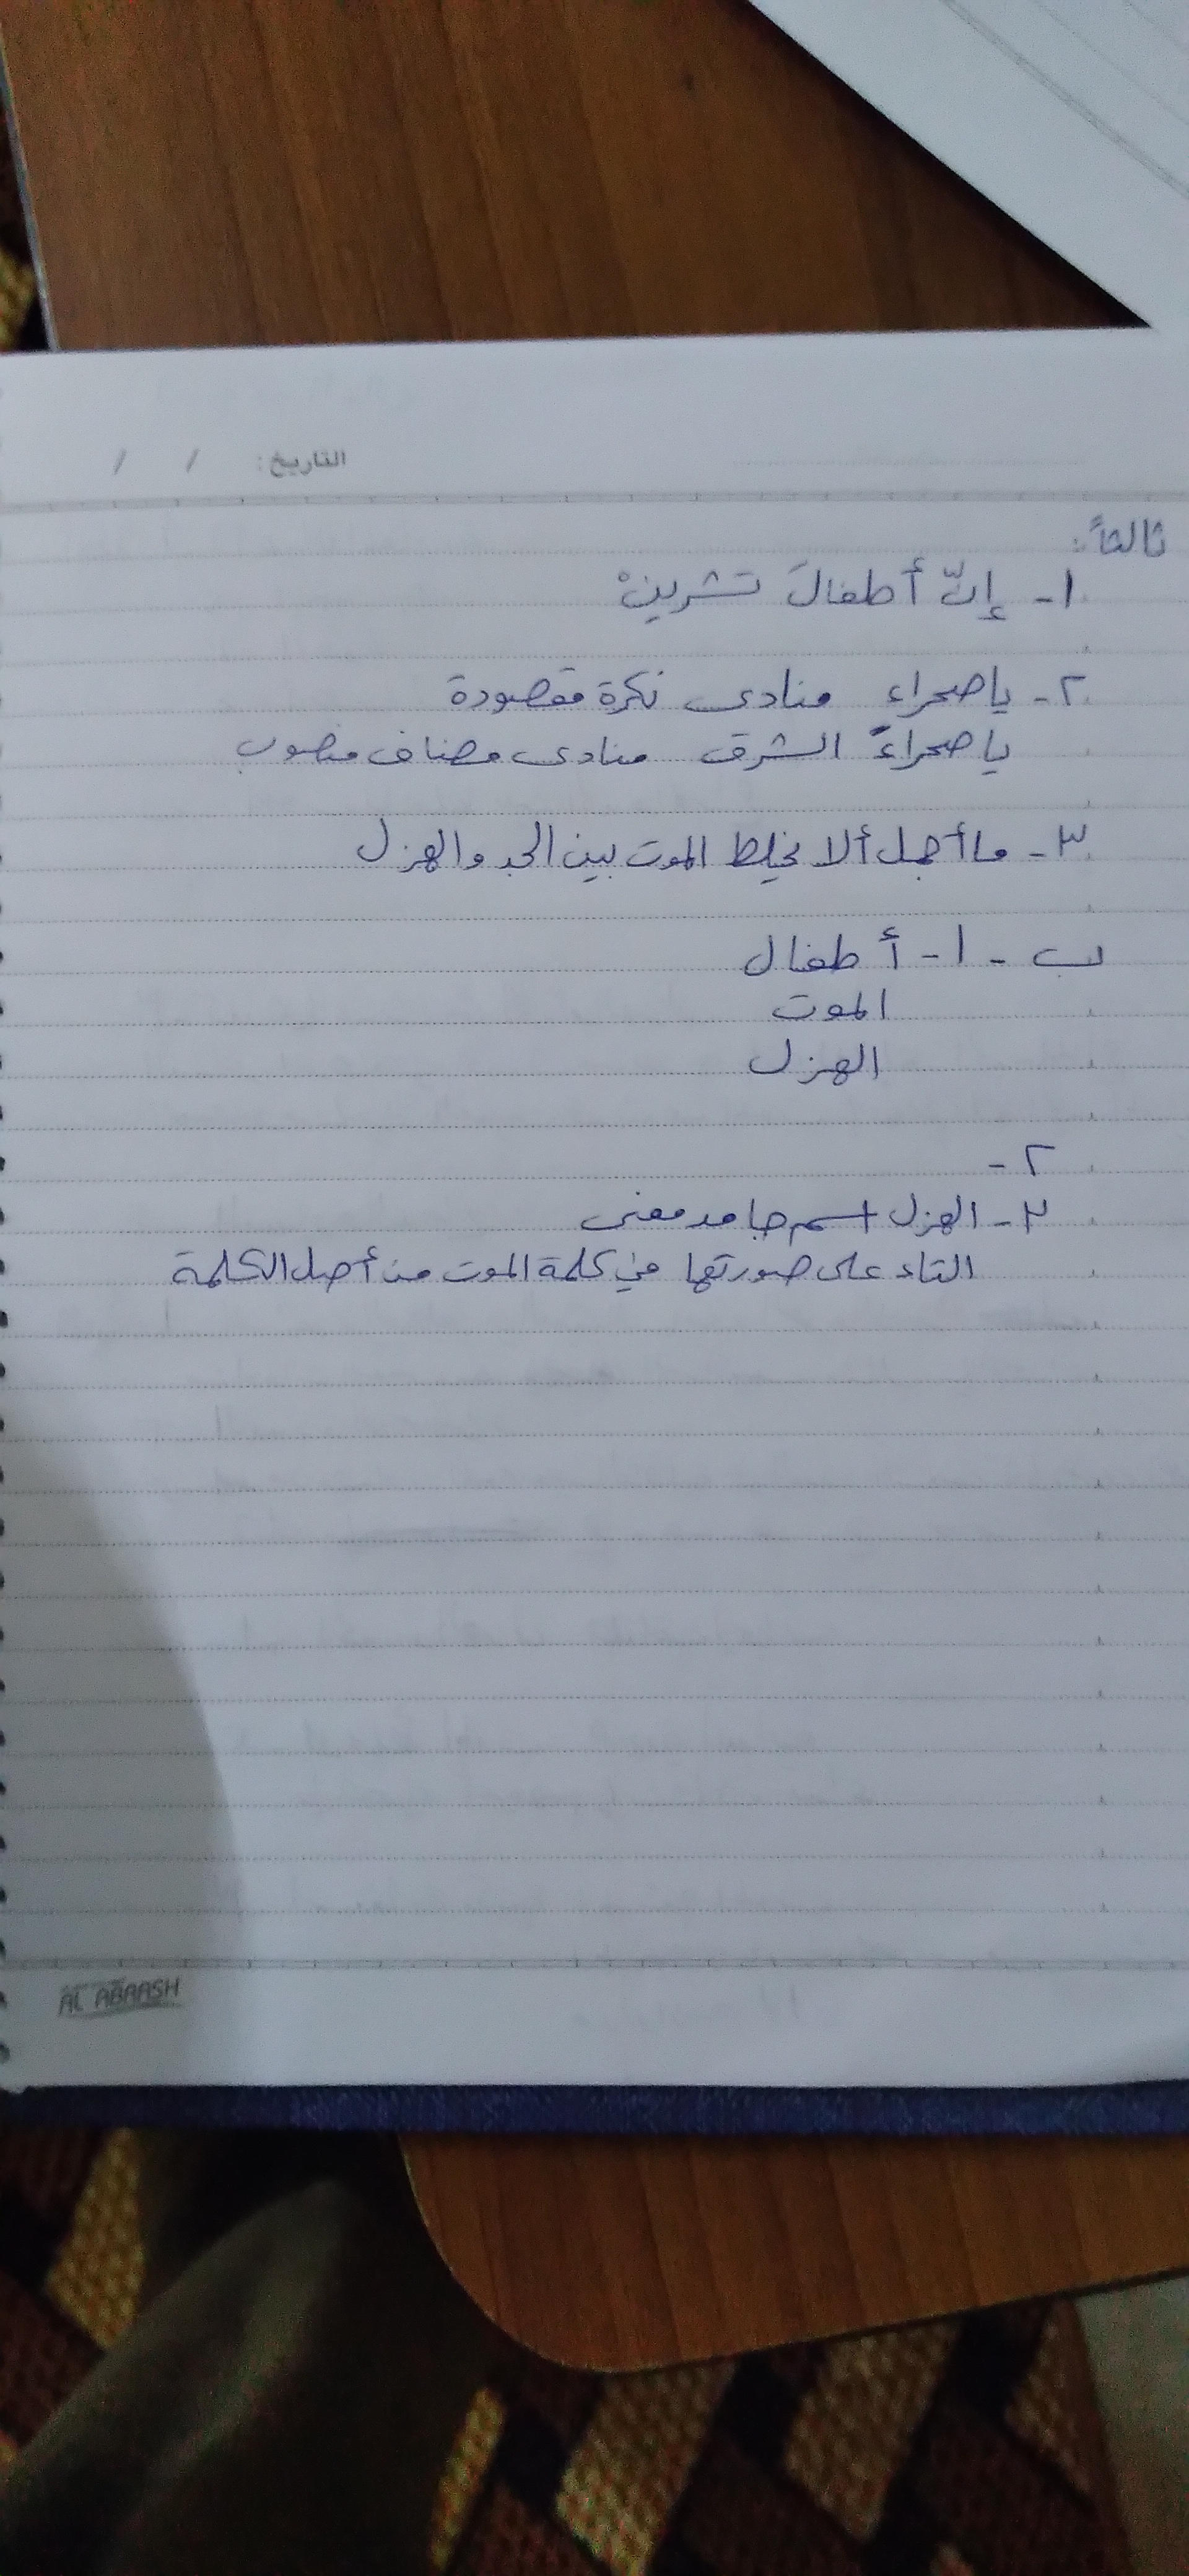 التاريخ: / /
ثالثاً:
١- إنّ أطفالَ تشرينْ
٢- ياصحراء منادى نكرة مقصودة
ياصحراءَ الشرق منادى مضاف منصوب
٣- ما أجمل ألا يخلط الموت بين الجد والهزل
ب - ١ - أطفال
الموت
الهزل
٢-
٣- الهزل اسم جامد معنى
التاء على صورتها في كلمة الموت من أصل الكلمة
AL ABRASH